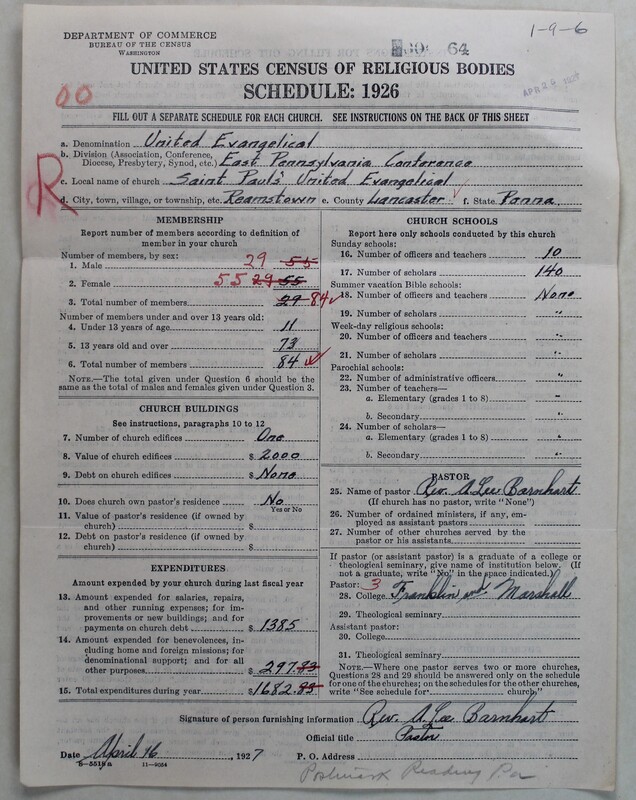 1-9-6
DEPARTMENT OF COMMERCE
BUREAU OF THE CENSUS
WASHINGTON
64
UNITED STATES CENSUS OF RELIGIOUS BODIES
SCHEDULE: 1926
00
FILL OUT A SEPARATE SCHEDULE FOR EACH CHURCH. SEE INSTRUCTIONS ON THE BACK OF THIS SHEET
a. Denomination United Evangelical
b. Division (Association, Conference, Diocese, Presbytery, Synod, etc.) East Pennsylvania Conference
R
c. Local name of church Saint Paul's United Evangelical
d. City, town, village, or township, etc. Reamstown e. County Lancaster f. State Penna
MEMBERSHIP
Report number of members according to definition of
member in your church
Number of members, by sex:
1. Male 29 55
2. Female 55 29 55
3. Total number of members 29 84
Number of members under and over 13 years old:
4. Under 13 years of age 11
5. 13 years old and over 73
6. Total number of members 84
NOTE.—The total given under Question 6 should be
same as the total of males and females given under Question 3.
CHURCH BUILDINGS
See instructions, paragraphs 10 to 12
7. Number of church edifices One
8. Value of church edifices $ 2000
9. Debt on church edifices $ None
10. Does church own pastor's residence? No
Yes or No
11. Value of pastor's residence (if owned by
church) $
12. Debt on pastor's residence (if owned by
church) $
EXPENDITURES
Amount expended by your church during last fiscal year
13. Amount expended for salaries, repairs,
and other running expenses; for im-
provements or new buildings; and for
payments on church debt $ 1385
14. Amount expended for benevolences, in-
cluding home and foreign missions; for
denominational support; and for all
other purposes 297.83
15. Total expenditures during year $1682.83
CHURCH SCHOOLS
Report here only schools conducted by this church
Sunday schools:
16. Number of officers and teachers 10
17. Number of scholars 140
Summer vacation Bible schools:
18. Number of officers and teachers None
19. Number of scholars "
Week-day religious schools:
20. Number of officers and teachers "
21. Number of scholars "
Parochial schools:
22. Number of administrative officers "
23. Number of teachers—
a. Elementary (grades 1 to 8) "
b. Secondary "
24. Number of scholars—
a. Elementary (grades 1 to 8) "
b. Secondary "
PASTOR
25. Name of pastor Rev. A. Lee Barnhart
(If church has no pastor, write "None")
26. Number of ordained ministers, if any, em-
ployed as assistant pastors
27. Number of other churches served by the
pastor or his assistants
If pastor (or assistant pastor) is a graduate of a college or
theological seminary, give name of institution below. (If
not a graduate, write "No" in the space indicated.)
Pastor: 3
28. College Franklin and Marshall
29. Theological seminary
Assistant pastor:
30. College
31. Theological seminary
NOTE.—Where one pastor serves two or more churches,
Questions 28 and 29 should be answered only on the schedule
for one of the churches; on the schedules for the other churches,
write "See schedule for church."
Signature of person furnishing information Rev. A. Lee Barnhart
Official title Pastor
Date April 16, 1927 P. O. Address
8-5518a 11-9034
Postmark Reading Pa